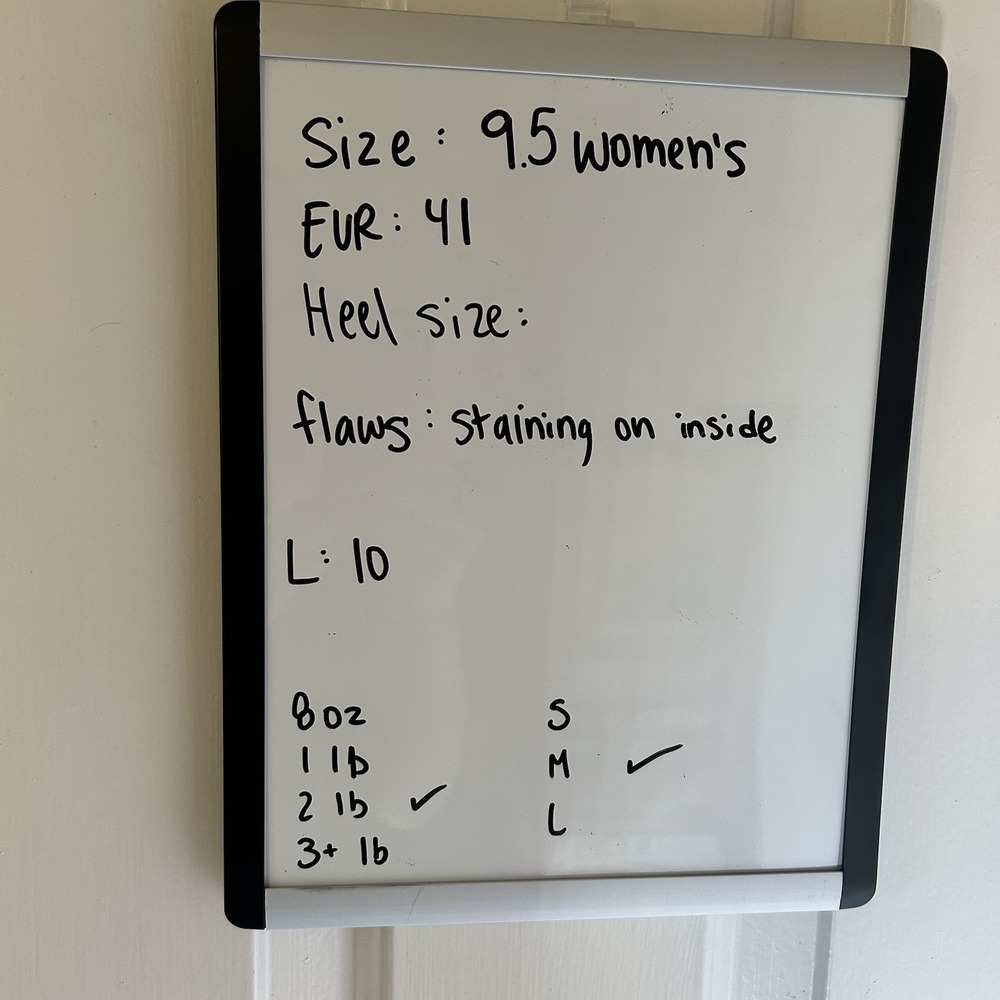 Size: 9.5 women's
EUR: 41
Heel size:
flaws: staining on inside
L: 10
8 oz
1 lb
2 lb ✓
3+ lb
S
M ✓
L